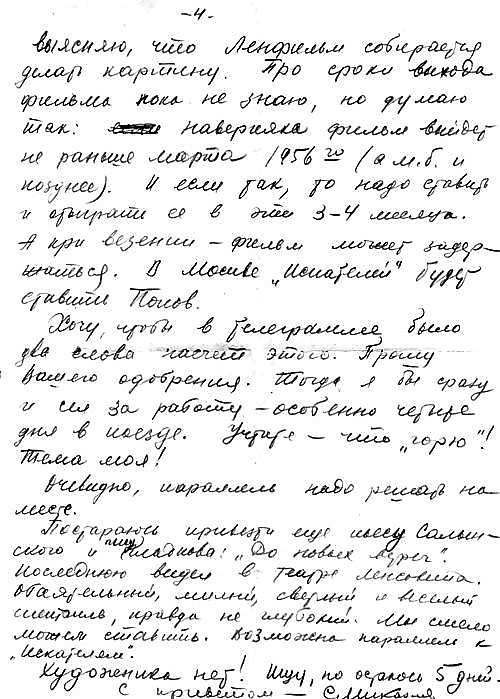 -4.
выясняю, что Ленфильм собирается
делать картину. Про сроки выхода
фильма пока не знаю, но думаю
так: наверняка фильм выйдет
не раньше марта 1956 го (а м.б. и
позднее). И если так, то надо ставить
и отыграть ее в эти 3-4 месяца.
А при везении - фильм может задер-
жаться. В Москве „Искателей" будет
ставить Попов.
Хочу, чтобы в телеграмме было
два слова насчет этого. Прошу
Вашего одобрения. Тогда я бы сразу
и сел за работу - особенно четыре
дня в поезде. Учтите - что „горю"!
Тема моя!
Очевидно, параллель надо решать на
месте.
Постараюсь привезти еще пьесу Салын-
ского и пьесу Гладкова: „До новых встреч".
Последнюю видел в театре Ленсовета.
Обаятельный, милый, светлый и веселый
спектакль, правда не глубокий. Мы смело
можем ставить. Возможна параллель к
„Искателям".
Художника нет! Ищу, но осталось 5 дней.
С приветом -